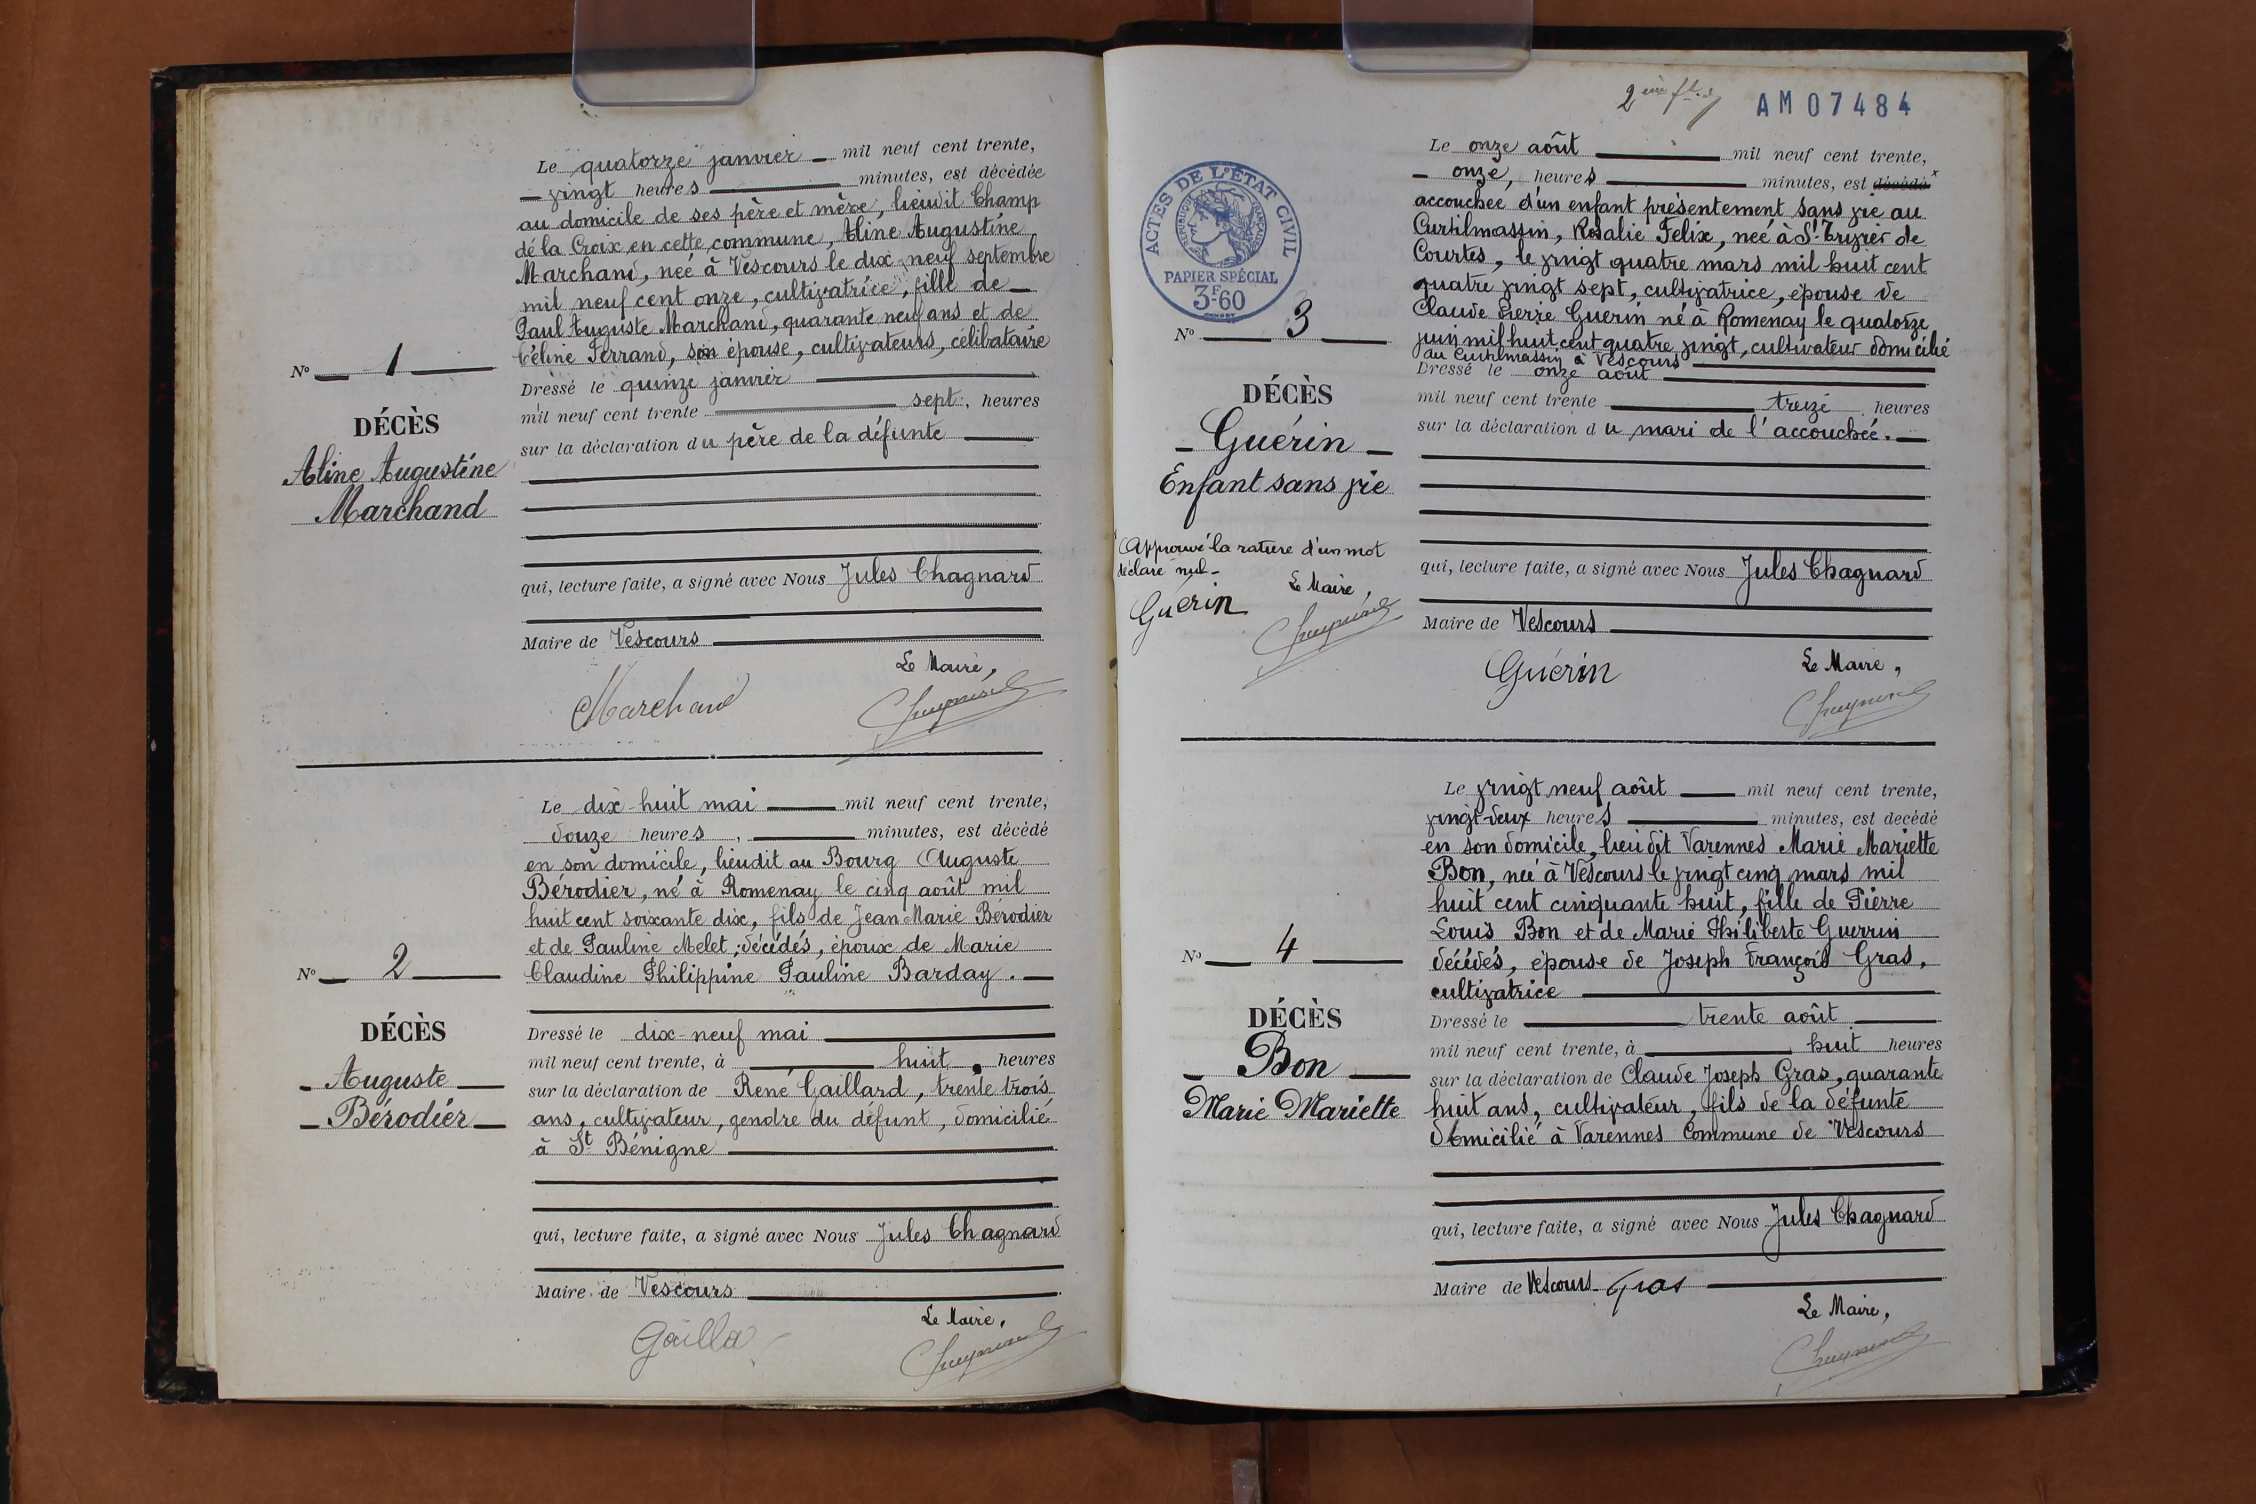 Le quatorze janvier mil neuf cent trente,
vingt heures minutes, est décédée
au domicile de ses père et mère, lieudit Champ
de la Croix en cette commune, Aline Augustine
Marchand, née à Vescours le dix neuf septembre
mil neuf cent onze, cultivatrice, fille de
Paul Auguste Marchand, quarante neuf ans et de
Céline Ferrand, son épouse, cultivateurs, célibataire
Nº 1
Dressé le quinze janvier
mil neuf cent trente sept, heures
sur la déclaration du père de la défunte
DÉCÈS
Aline Augustine
Marchand
qui, lecture faite, a signé avec Nous Jules Chagnard
Maire de Vescours
Le Maire,
Marchand
Le dix-huit mai mil neuf cent trente,
douze heures, minutes, est décédé
en son domicile, lieudit au Bourg Auguste
Bérodier, né à Romenay le cinq août mil
huit cent soixante dix, fils de Jean Marie Bérodier
et de Pauline Melet, décédés, époux de Marie
Claudine Philippine Pauline Barday.
Nº 2
DÉCÈS
Auguste
Bérodier
Dressé le dix-neuf mai
mil neuf cent trente, à huit, heures
sur la déclaration de René Caillard, trente trois
ans, cultivateur, gendre du défunt, domicilié
à St Bénigne
qui, lecture faite, a signé avec Nous Jules Chagnard
Maire de Vescours
Le Maire,
AM 07484
ACTES DE L'ÉTAT CIVIL
RÉPUBLIQUE FRANÇAISE
PAPIER SPÉCIAL
3F.60
Le onze août mil neuf cent trente,
onze, heures minutes, est décédé x
accouchée d'un enfant présentement sans vie au
Curtilmassin, Rosalie Felix, née à St Trivier de
Courtes, le vingt quatre mars mil huit cent
quatre vingt sept, cultivatrice, épouse de
Claude Pierre Guérin né à Romenay le quatorze
juin mil huit cent quatre vingt, cultivateur domicilié
au Curtilmassin à Vescours
Nº 3
Dressé le onze août
mil neuf cent trente treize heures
sur la déclaration du mari de l'accouchée.
DÉCÈS
Guérin
Enfant sans vie
Approuvé la rature d'un mot
déclaré nul
Le Maire,
Guérin
qui, lecture faite, a signé avec Nous Jules Chagnard
Maire de Vescours
Le Maire,
Guérin
Le vingt neuf août mil neuf cent trente,
vingt-deux heures minutes, est décédé
en son domicile, lieudit Varennes Marie Mariette
Bon, née à Vescours le vingt cinq mars mil
huit cent cinquante huit, fille de Pierre
Louis Bon et de Marie Philiberte Guerrin
décédés, épouse de Joseph François Gras,
cultivatrice
Nº 4
DÉCÈS
Bon
Marie Mariette
Dressé le trente août
mil neuf cent trente, à huit heures
sur la déclaration de Claude Joseph Gras, quarante
huit ans, cultivateur, fils de la défunte
domicilié à Varennes Commune de Vescours
qui, lecture faite, a signé avec Nous Jules Chagnard
Maire de Vescours Gras
Le Maire,